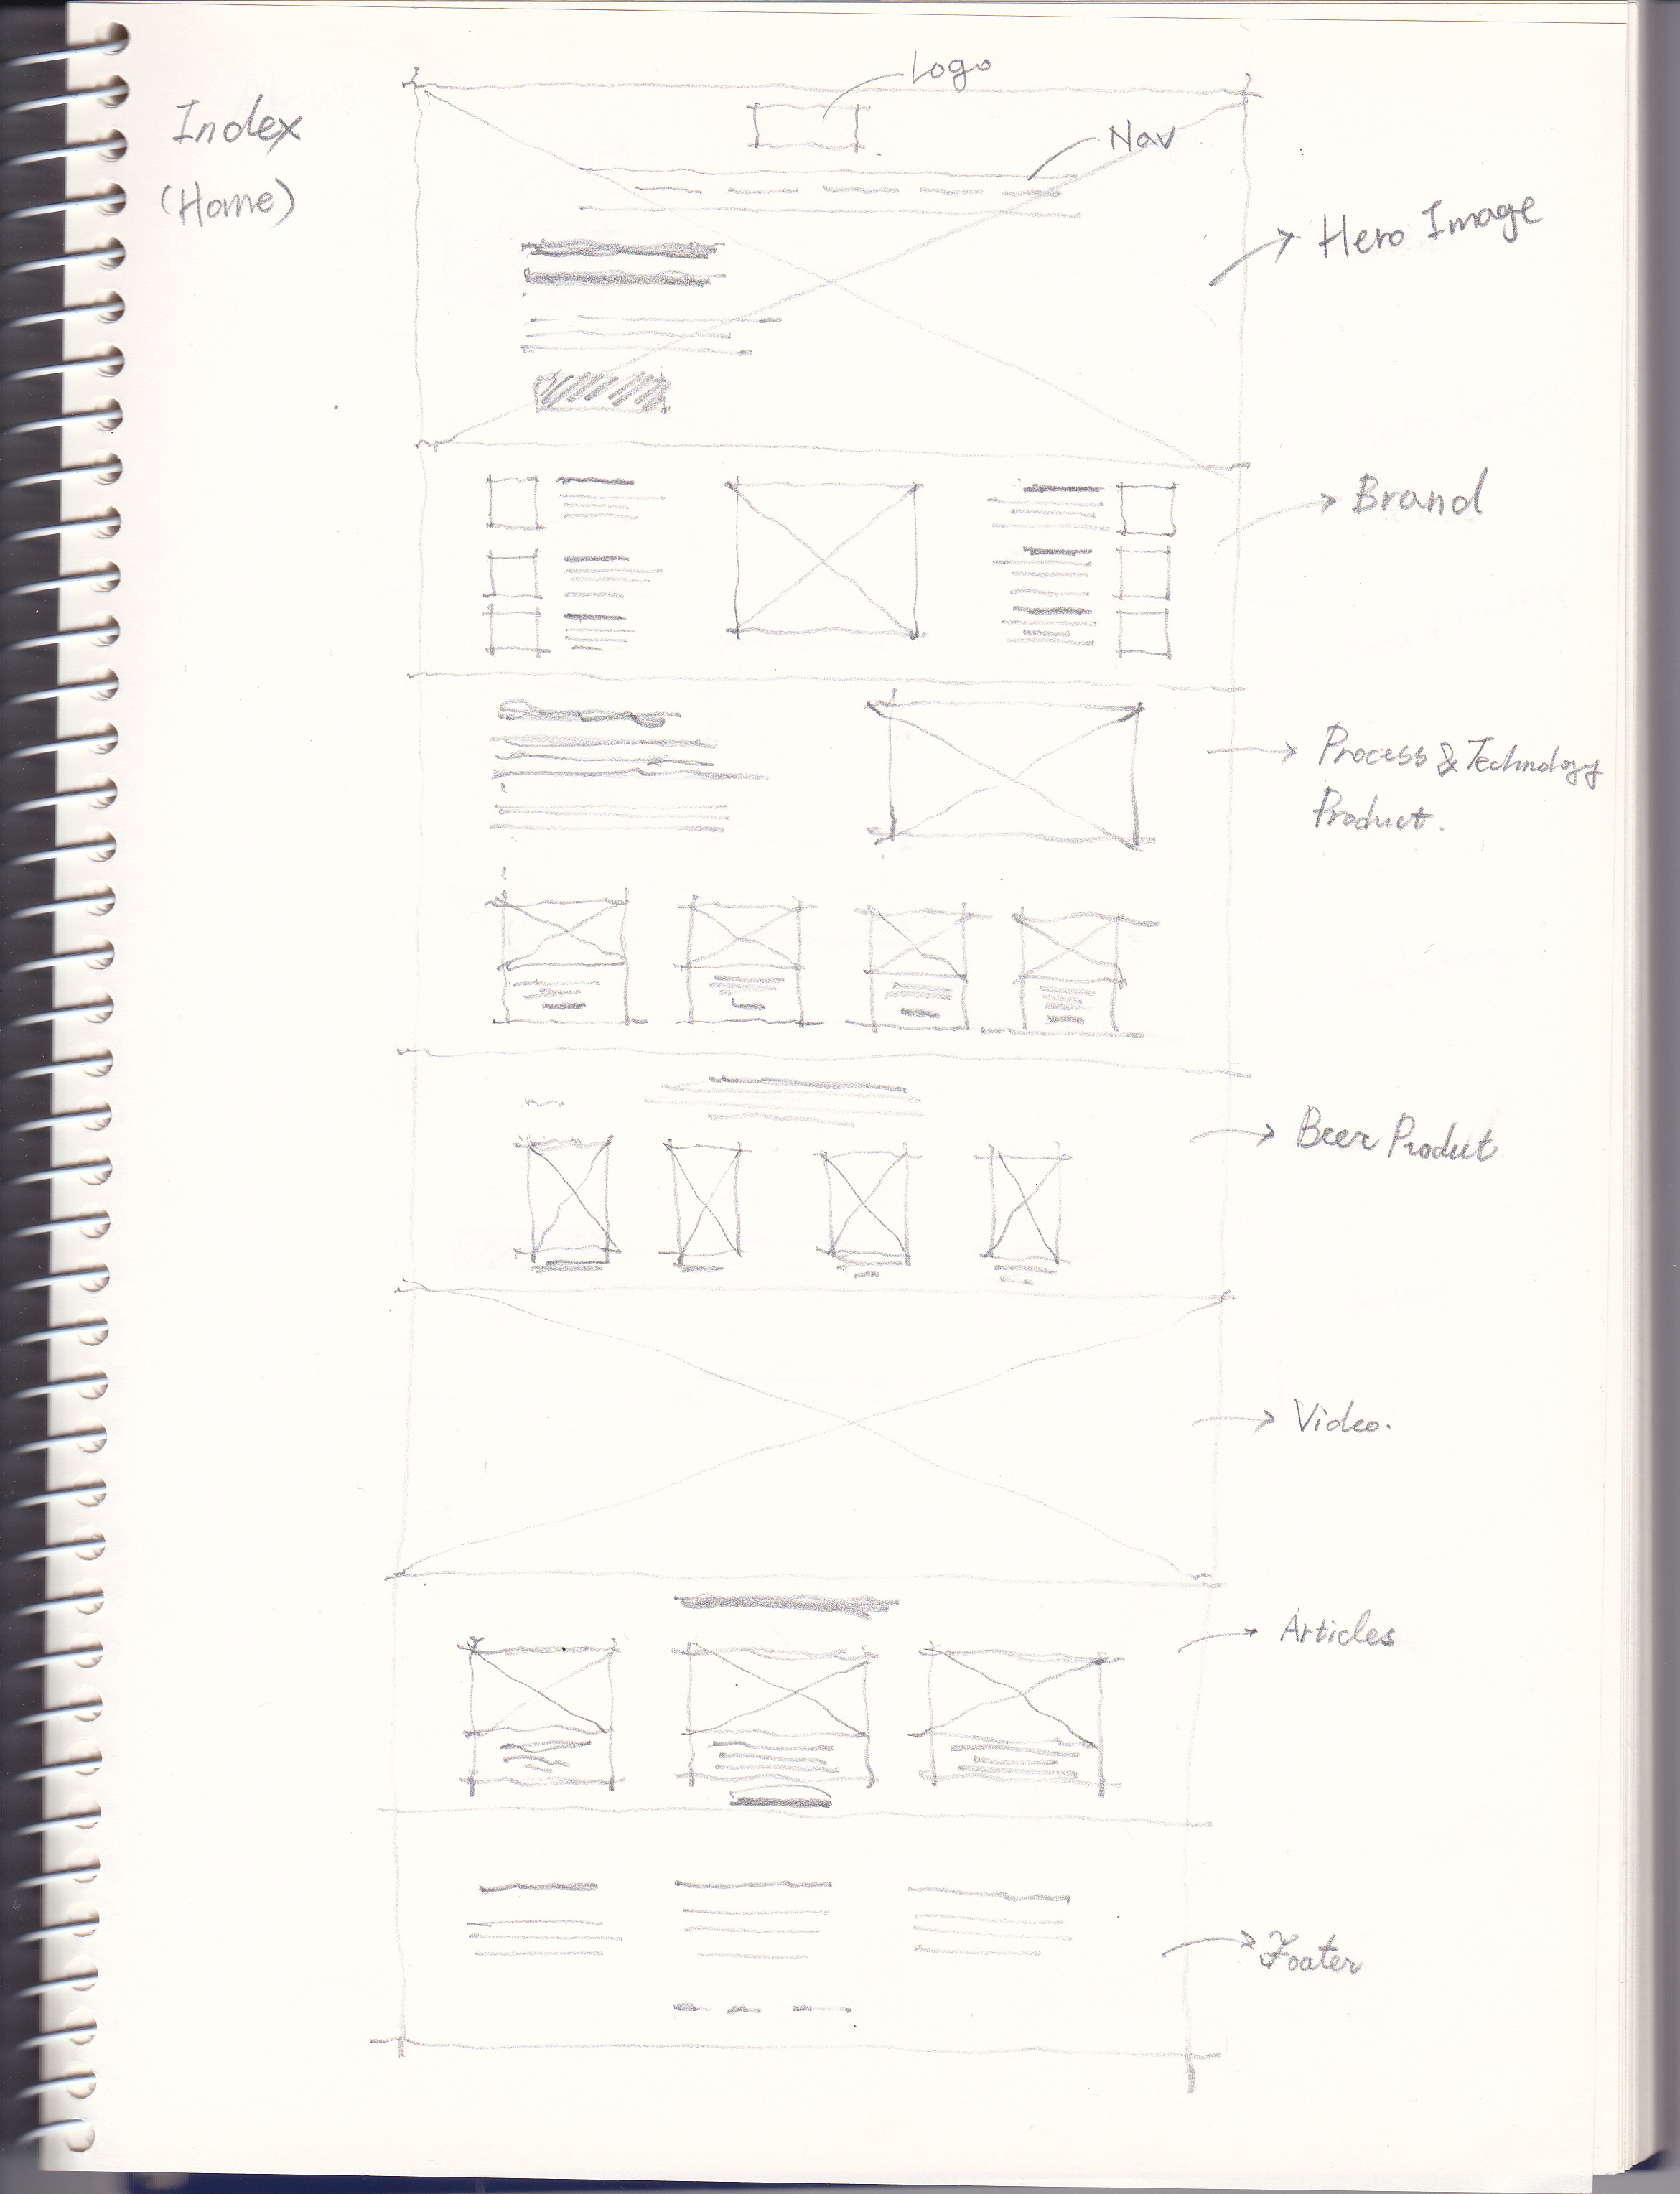 Index
(Home)
Logo
Nav
Hero Image
Brand
Process & Technology
Product.
Beer Produt
Video.
Articles
Footer